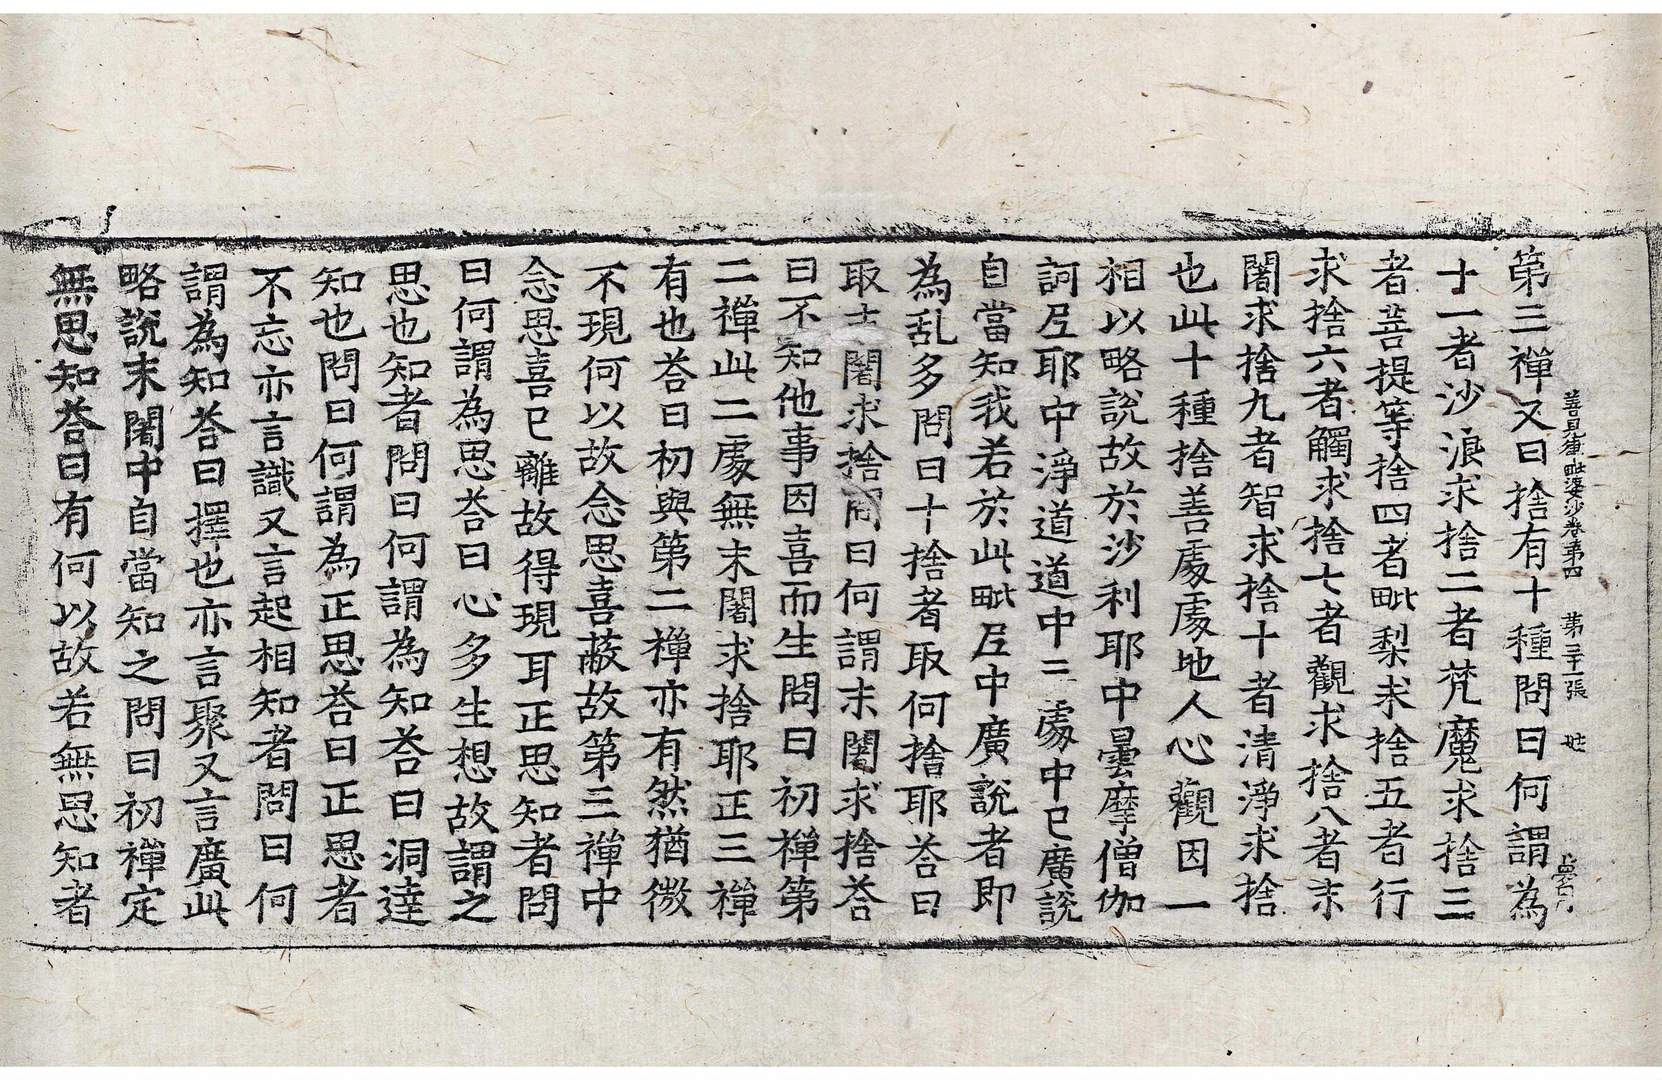 善見律毗婆沙卷第四 第三十二張 姓
第三禪又曰捨有十種問曰何謂為
十一者沙浪求捨二者梵魔求捨三
者菩提等捨四者毗梨求捨五者行
求捨六者觸求捨七者觀求捨八者末
闍求捨九者智求捨十者清淨求捨
也此十種捨善處處地人心觀因一
相以略說故於沙利耶中曇摩僧伽
訶𡰱耶中淨道道中三處中已廣說
自當知我若於此毗𡰱中廣說者即
為乱多問曰十捨者取何捨耶荅曰
取末闍求捨問曰何謂末闍求捨荅
曰不知他事因喜而生問曰初禪第
二禪此二處無末闍求捨耶正三禪
有也荅曰初與第二禪亦有然猶微
不現何以故念思喜蔽故第三禪中
念思喜已離故得現耳正思知者問
曰何謂為思荅曰心多生想故謂之
思也知者問曰何謂為知荅曰洞達
知也問曰何謂為正思荅曰正思者
不忘亦言識又言起相知者問曰何
謂為知荅曰擇也亦言聚又言廣此
略說末闍中自當知之問曰初禪定
無思知荅曰有何以故若無思知者